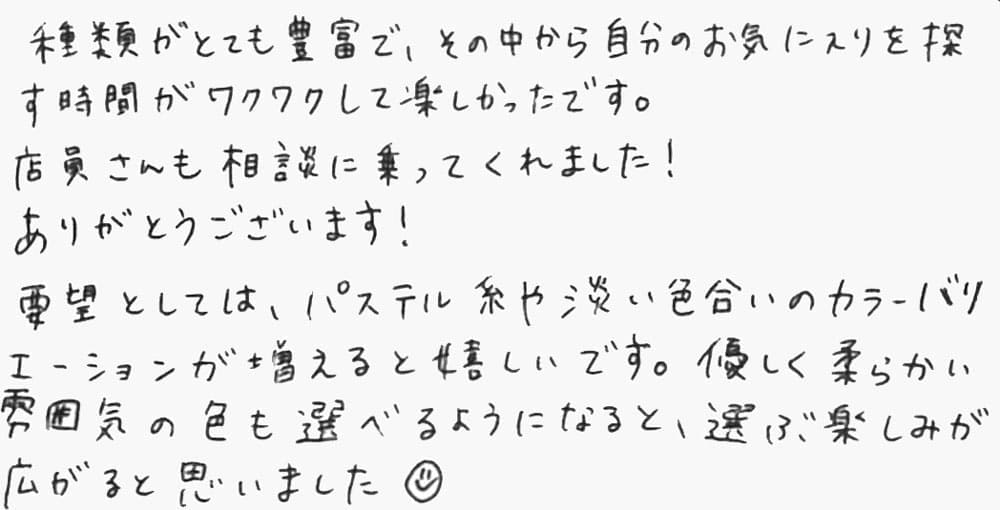 種類がとても豊富で、その中から自分のお気に入りを探
す時間がワクワクして楽しかったです。
店員さんも相談に乗ってくれました!
ありがとうございます!
要望としては、パステル糸や淡い色合いのカラーバリ
エーションが増えると嬉しいです。優しく柔らかい
雰囲気の色も選べるようになると、選ぶ楽しみが
広がると思いました☺